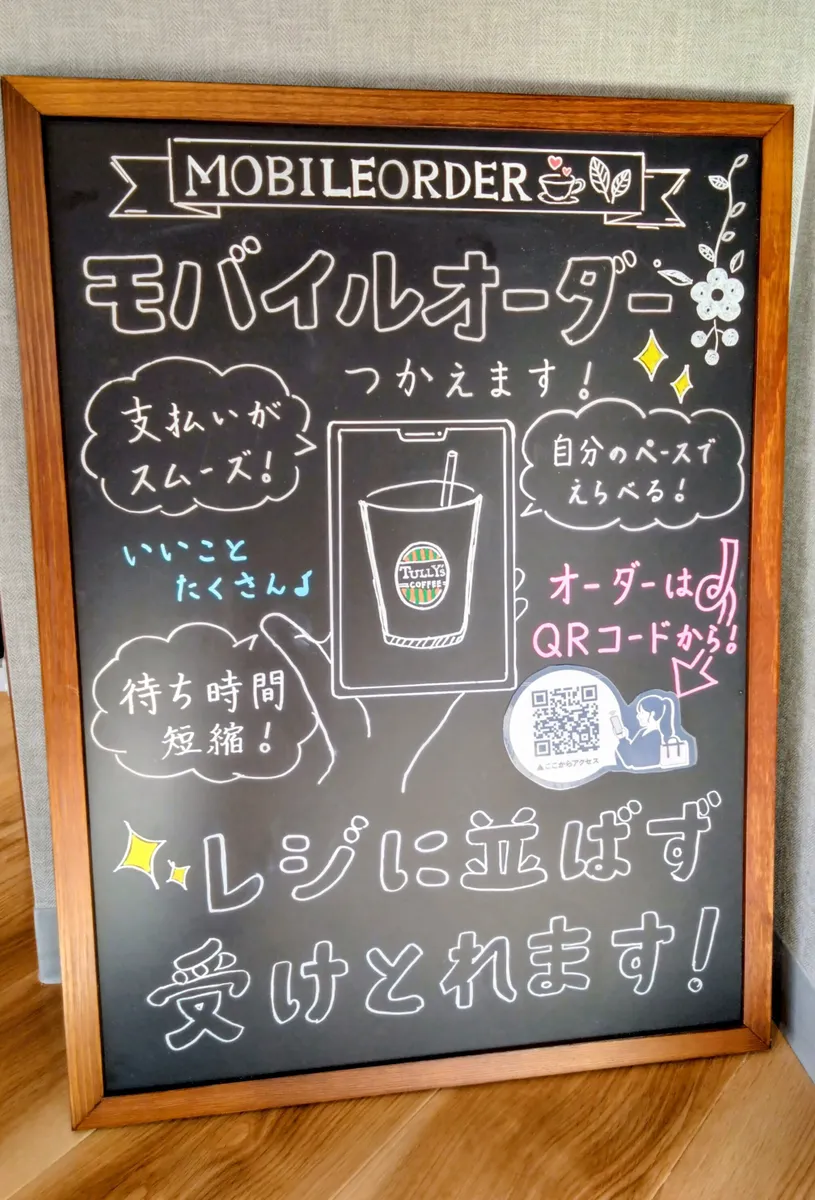 MOBILEORDER
モバイルオーダー
つかえます!
支払いが
スムーズ!
自分のペースで
えらべる!
TULLY'S
COFFEE
いいこと
たくさん♪
オーダーは
QRコードから!
待ち時間
短縮!
▲ここからアクセス
レジに並ばず
受けとれます!